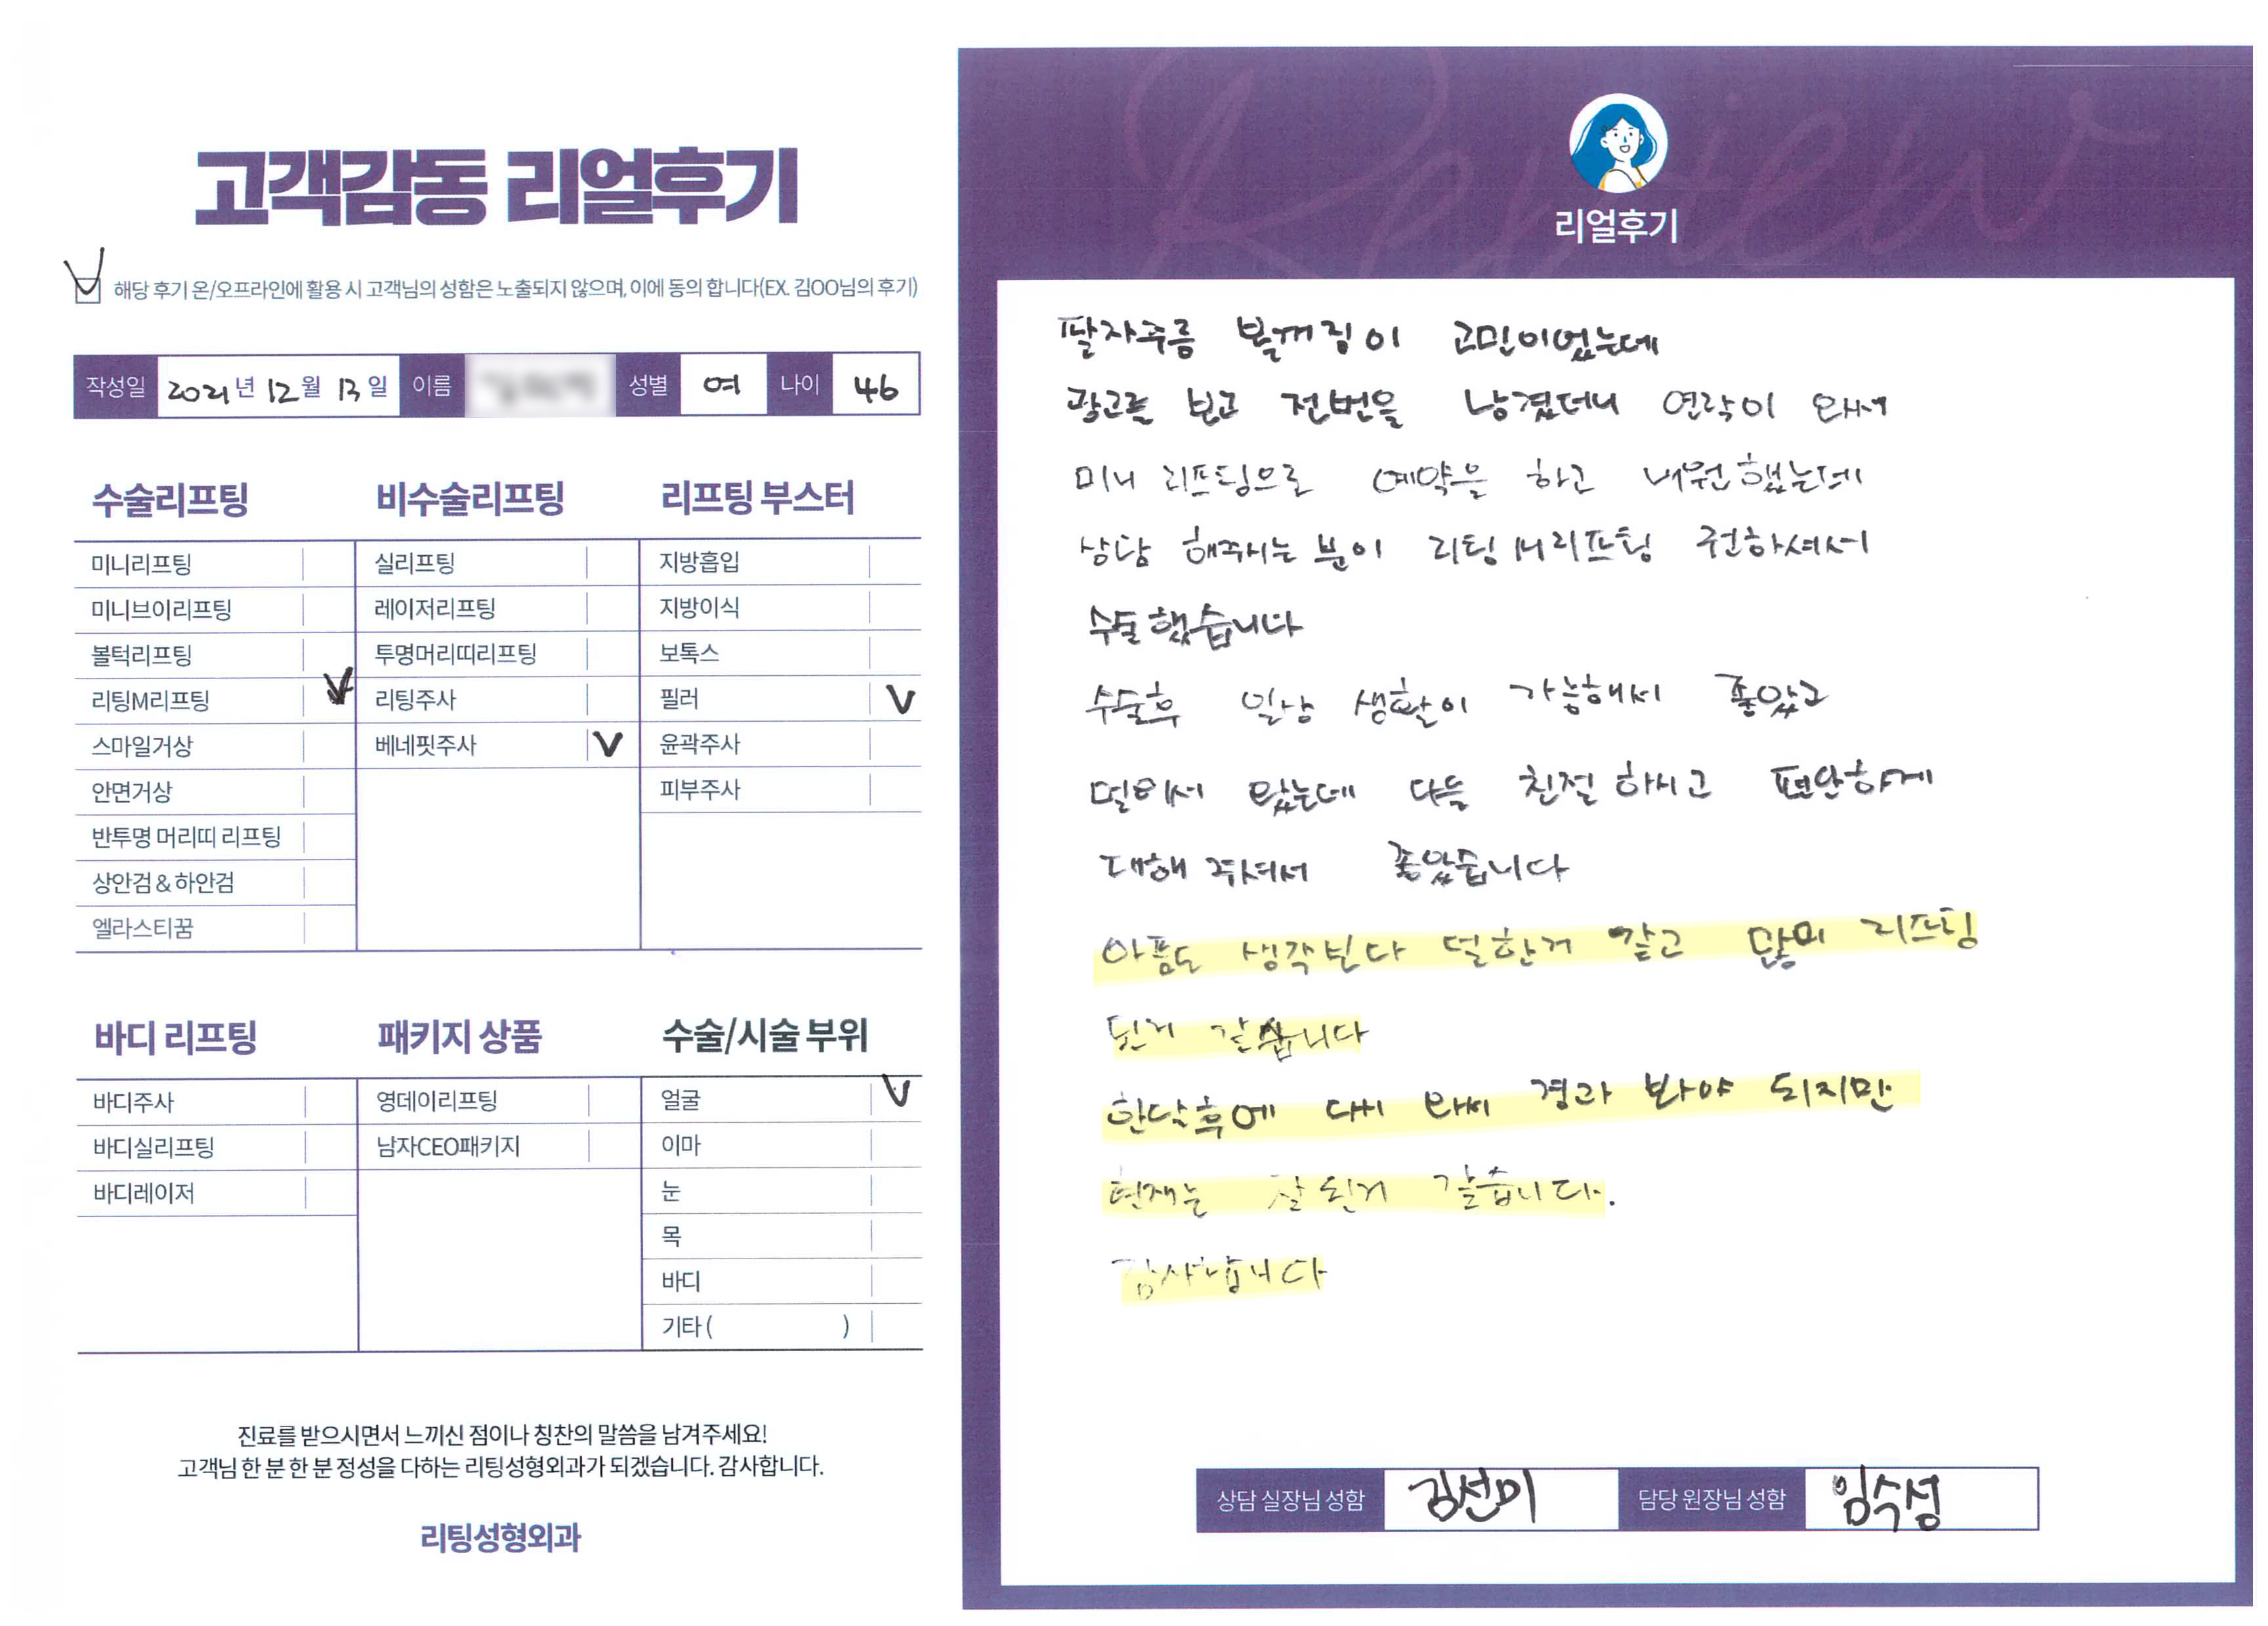 고객감동 리얼후기
해당 후기 온/오프라인에 활용 시 고객님의 성함은 노출되지 않으며, 이에 동의 합니다(EX. 김OO님의 후기)
작성일 2021년 12월 13일 이름 성별 여 나이 46
수술리프팅
미니리프팅
미니브이리프팅
볼턱리프팅
리팅M리프팅
스마일거상
안면거상
반투명 머리띠 리프팅
상안검 & 하안검
엘라스티꿈
비수술리프팅
실리프팅
레이저리프팅
투명머리띠리프팅
리팅주사
베네핏주사
리프팅 부스터
지방흡입
지방이식
보톡스
필러
윤곽주사
피부주사
바디 리프팅
바디주사
바디실리프팅
바디레이저
패키지 상품
영데이리프팅
남자CEO패키지
수술/시술 부위
얼굴
이마
눈
목
바디
기타 ( )
진료를 받으시면서 느끼신 점이나 칭찬의 말씀을 남겨주세요!
고객님 한 분 한 분 정성을 다하는 리팅성형외과가 되겠습니다. 감사합니다.
리팅성형외과
Review
리얼후기
팔자주름 볼꺼짐이 고민이었는데
광고를 보고 전번을 남겼더니 연락이 와서
미니 리프팅으로 예약을 하고 내원했는데
상담 해주시는 분이 리팅 M리프팅 권하셔서
수술했습니다
수술후 일상 생활이 가능해서 좋았고
멀어서 왔는데 다들 친절하시고 편안하게
대해 주셔서 좋았습니다
아픔도 생각보다 덜한거 같고 많이 리프팅
된거 같습니다
한달후에 다시 와서 경과 봐야 되지만
현재는 잘 된거 같습니다.
감사합니다
상담 실장님 성함 김선미 담당 원장님 성함 임수성